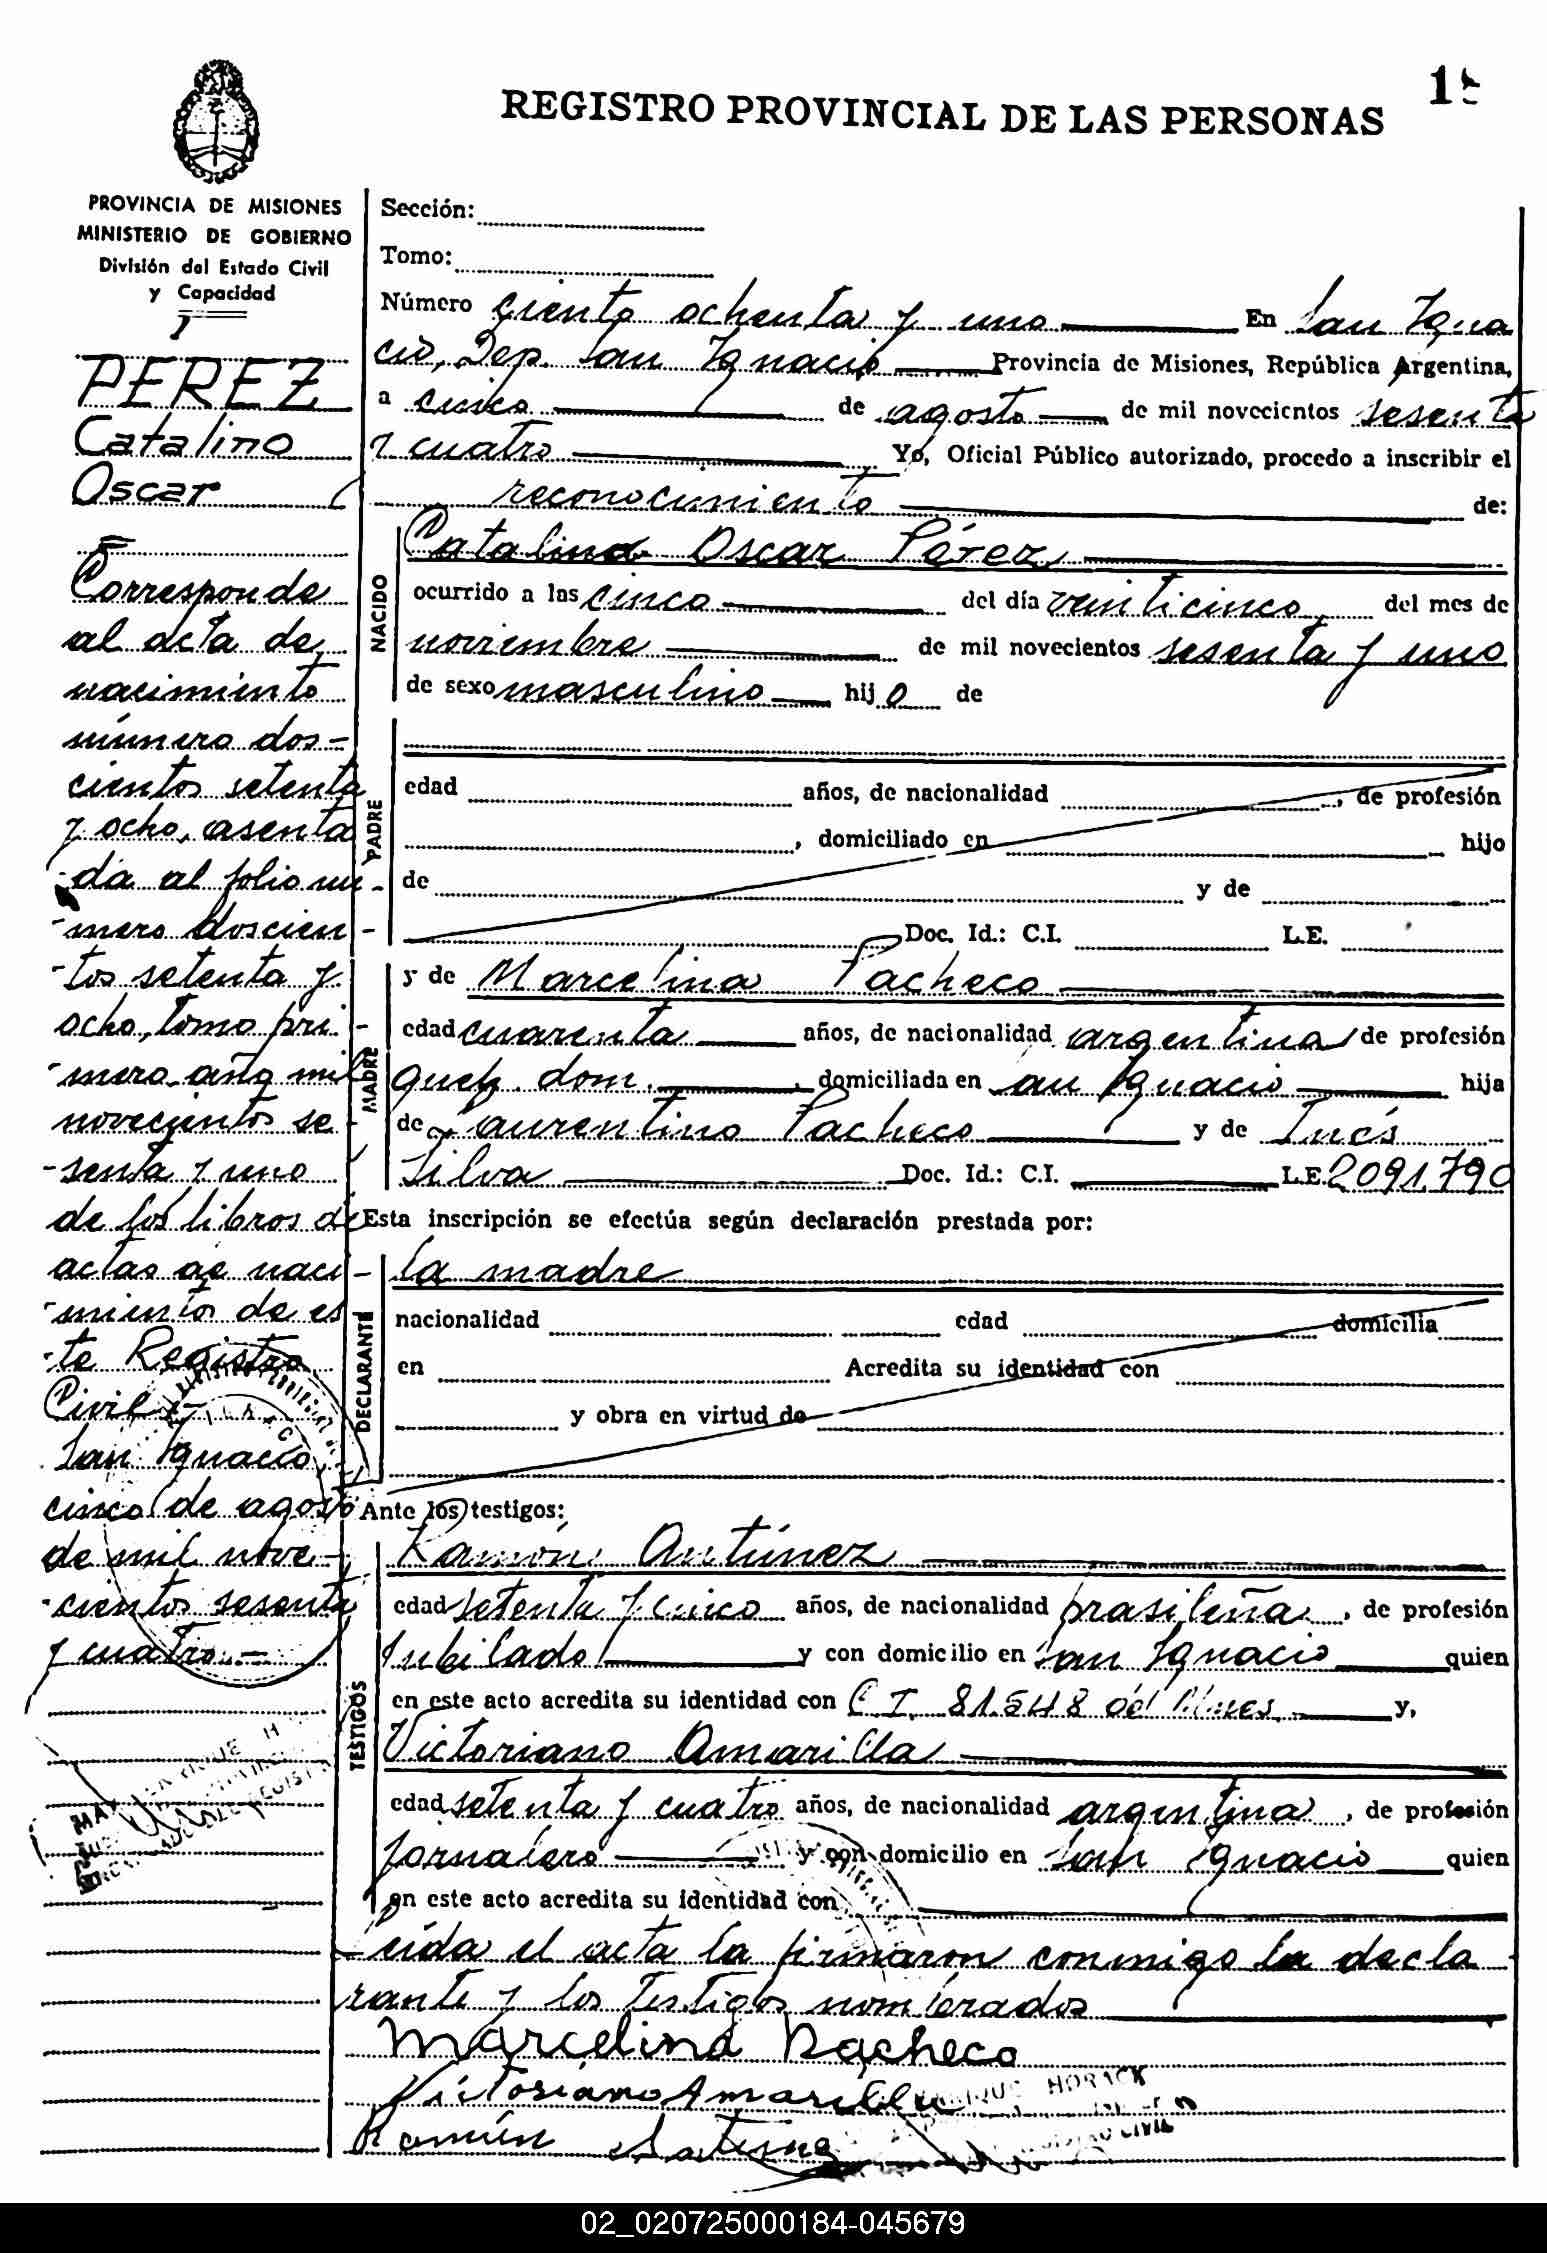 REGISTRO PROVINCIAL DE LAS PERSONAS
PROVINCIA DE MISIONES
MINISTERIO DE GOBIERNO
División del Estado Civil
y Capacidad
PEREZ
Catalino
Oscar
Corresponde
al acta de
nacimiento
número dos-
cientos setenta
y ocho, asenta
da al folio nú-
mero doscien-
tos setenta y
ocho, tomo pri-
mero año mil
novecientos se-
senta y uno
de los libros de
actas de naci-
miento de es
te Registro
Civil.-
San Ignacio,
cinco de agosto
de mil nove-
cientos sesenta
y cuatro.-
Sección:
Tomo:
Número ciento ochenta y uno En San Igna
cio, Dep. San Ignacio Provincia de Misiones, República Argentina,
a cinco de agosto de mil novecientos sesenta
y cuatro Yo, Oficial Público autorizado, procedo a inscribir el
reconocimiento de:
NACIDO
Catalino Oscar Pérez
ocurrido a las cinco del día veinticinco del mes de
noviembre de mil novecientos sesenta y uno
de sexo masculino hijo de
PADRE
edad años, de nacionalidad , de profesión
, domiciliado en hijo
de y de
Doc. Id.: C.I. L.E.
MADRE
y de Marcelina Pacheco
edad cuarenta años, de nacionalidad argentina de profesión
queh. dom. , domiciliada en San Ignacio hija
de Laurentino Pacheco y de Inés
Silva Doc. Id.: C.I. L.E. 2091.790
Esta inscripción se efectúa según declaración prestada por:
DECLARANTE
la madre
nacionalidad edad domicilia
en Acredita su identidad con
y obra en virtud de
Ante los testigos:
TESTIGOS
Ramón Antúnez
edad setenta y cinco años, de nacionalidad brasileña , de profesión
jubilado y con domicilio en San Ignacio quien
en este acto acredita su identidad con C.I. 81.548 de Mnes. y,
Victoriano Amarilla
edad setenta y cuatro años, de nacionalidad argentina , de profesión
jornalero y con domicilio en San Ignacio quien
en este acto acredita su identidad con
Leída el acta la firmaron conmigo la decla
rante y los testigos nombrados
Marcelina Pacheco
Victoriano Amarilla
Ramón
ENRIQUE HORACK
02_020725000184-045679